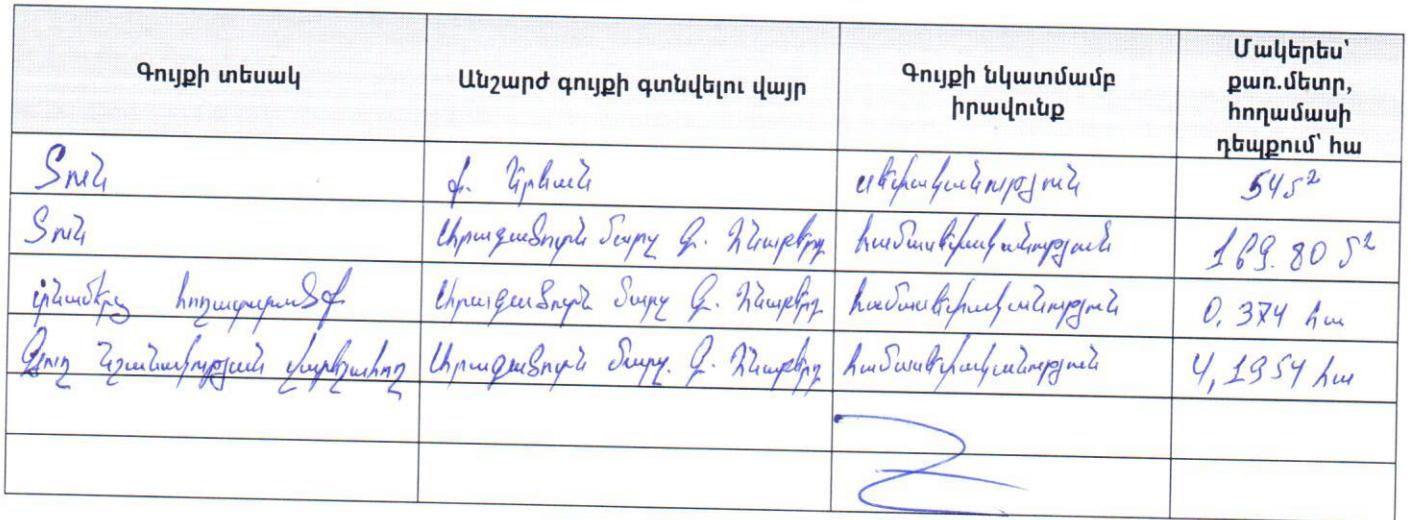 Գույքի տեսակ
Անշարժ գույքի գտնվելու վայր
Գույքի նկատմամբ
իրավունք
Մակերես՝
քառ.մետր,
հողամասի
դեպքում՝ հա
Տուն
ք. Երևան
սեփականություն
54 մ²
Տուն
Արագածոտն մարզ գ. Ծնաբերդ... համասեփականություն
169.80 մ²
տնամերձ հողատարածք
Արագածոտն մարզ գ.
համասեփականություն
0,374 հա
Գյուղ նշանակության վարելահող
Արագածոտն մարզ. գ.
համասեփականություն
4,1954 հա